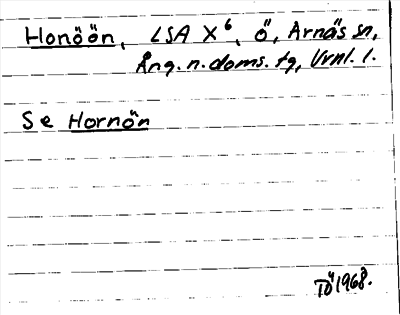 Honöön, LSA X⁶, ö, Arnäs sn,
Ång. n. doms. tg, Vrnl. l.
Se Hornön
1968.